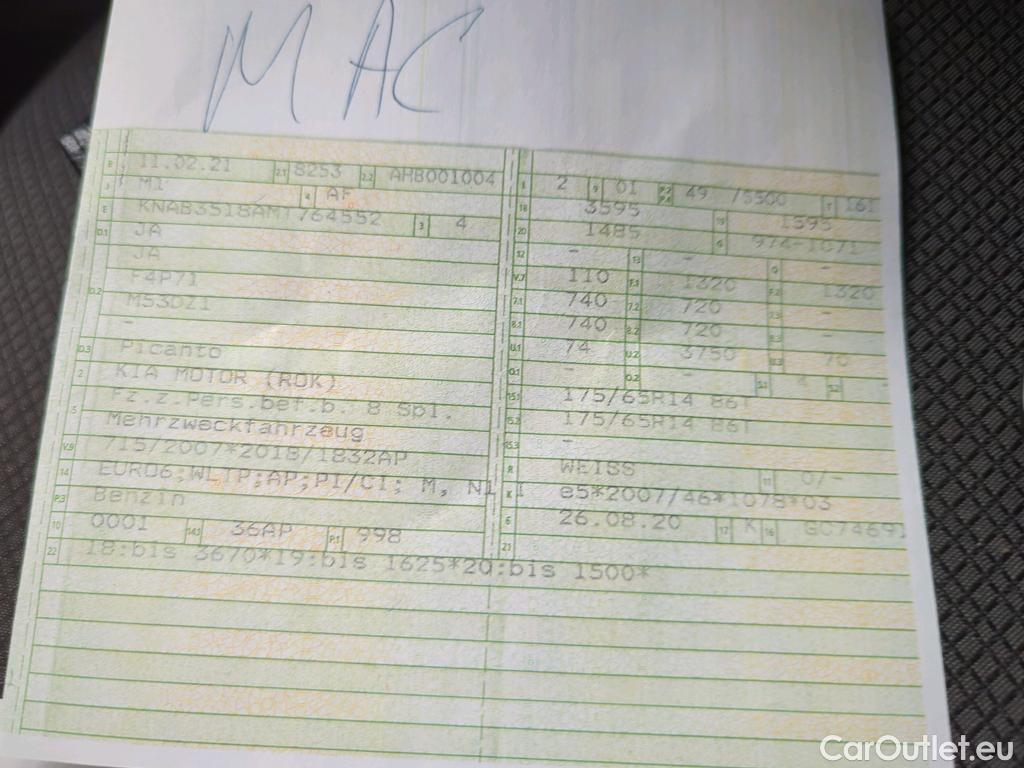 MAC
B 11.02.21 2.1 8253 2.2 AHB001004
J M1 4 AF
E KNAB3518AMT764552 3 4
D.1 JA
JA
D.2 F4P71
M53DZ1
-
D.3 Picanto
2 KIA MOTOR (ROK)
5 Fz.z.Pers.bef.b. 8 Spl.
Mehrzweckfahrzeug
V.9 715/2007*2018/1832AP
14 EURO6;WLTP;AP;PI/CI; M, N1 I
P.3 Benzin
10 0001 14.1 36AP P.1 998
22 18:bis 3670*19:bis 1625*20:bis 1500*
L 2 9 01 P.2 P.4 49 /5500 T 161
18 3595 19 1595
20 1485 G 974-1071
12 - 13 - Q -
V.7 110 F.1 1320 F.2 1320
7.1 740 7.2 720 7.3 -
8.1 740 8.2 720 8.3 -
U.1 74 U.2 3750 U.3 70
O.1 - O.2 - S.1 4 S.2 -
15.1 175/65R14 86T
15.2 175/65R14 86T
15.3 -
R WEISS 11 0/-
K e5*2007/46*1078*03
6 26.08.20 17 K 16
21
CarOutlet.eu